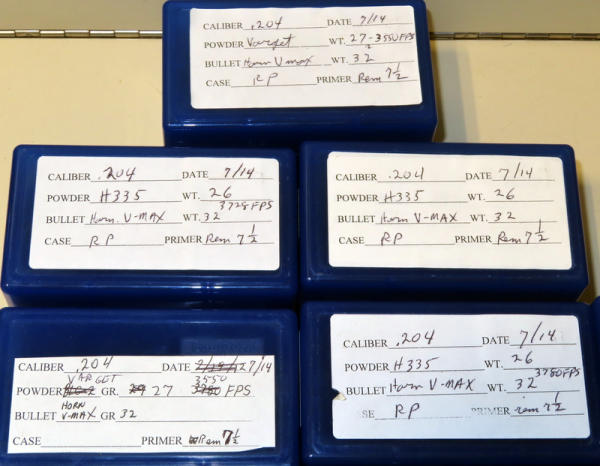 CALIBER .204 DATE 7/14
POWDER Varget WT. 27-3550 FPS
BULLET Horn V max WT. 32
CASE RP PRIMER Rem 7 1/2
CALIBER .204 DATE 7/14
POWDER H335 WT. 26
3728 FPS
BULLET Horn. V-MAX WT. 32
CASE RP PRIMER Rem 7 1/2
CALIBER .204 DATE 7/14
POWDER H335 WT. 26
BULLET Horn V-MAX WT. 32
CASE RP PRIMER Rem 7 1/2
CALIBER .204 DATE 7/14
VARGET 3550
POWDER GR. 27 FPS
HORN
BULLET V-MAX GR 32
CASE PRIMER Rem 7 1/2
CALIBER .204 DATE 7/14
POWDER H335 WT. 26
3780 FPS
BULLET Horn V-MAX WT. 32
SE RP PRIMER rem 7 1/2